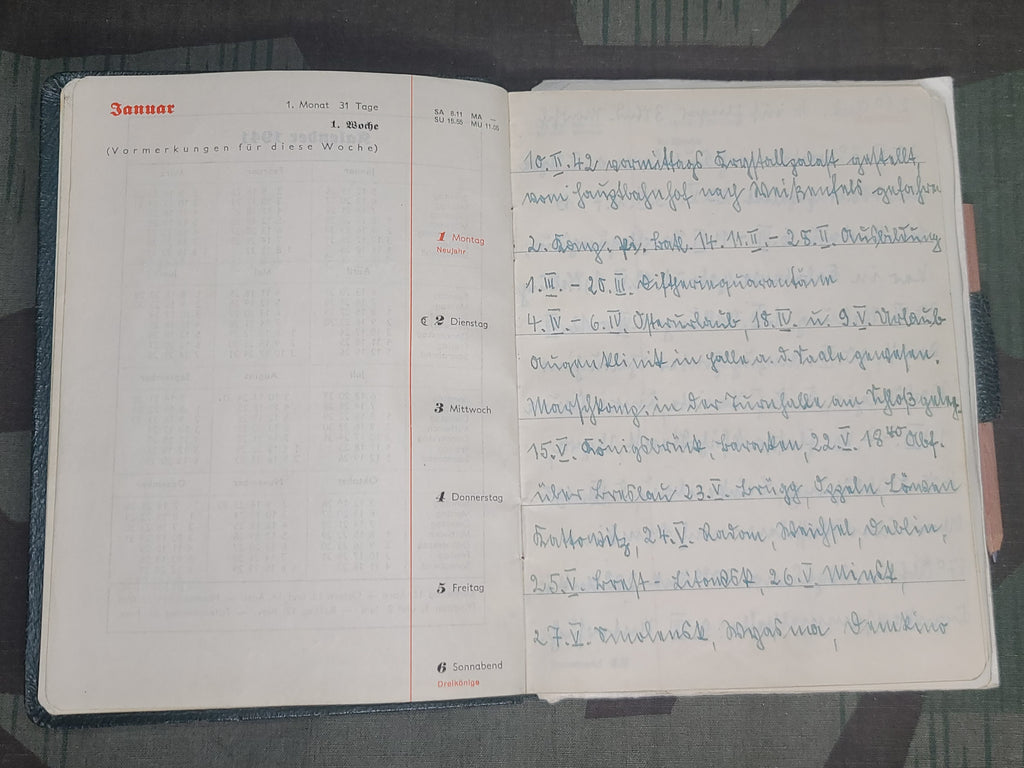 Januar
1. Monat 31 Tage
1. Woche
(Vormerkungen für diese Woche)
SA 8.11 MA —
SU 15.55 MU 11.05
1 Montag
Neujahr
2 Dienstag
3 Mittwoch
4 Donnerstag
5 Freitag
6 Sonnabend
Dreikönige
10.II.42 vormittags Krystallpalast gestellt,
vom Hauptbahnhof nach Weißenfels gefahren
2. Komp. Pi. Batl. 14. 11.II. - 28.II. Ausbildung
1.III. - 20.III. Diftheriequarantäne
4.IV. - 6.IV. Osterurlaub, 18.IV. u. 9.V. Urlaub
Augenklinik in Halle a. d. Saale gewesen.
Marschkomp. in der Turnhalle am Schloß geleg.
15.V. Königsbrück, Baracken, 22.V. 18⁴⁰ Abf.
über Breslau 23.V. Brigg, Oppeln,
Kattowitz, 24.V. Radom, Weichsel, Deblin,
25.V. Brest-Litowsk, 26.V. Minsk,
27.V. Smolensk, Wyasma, Demkino